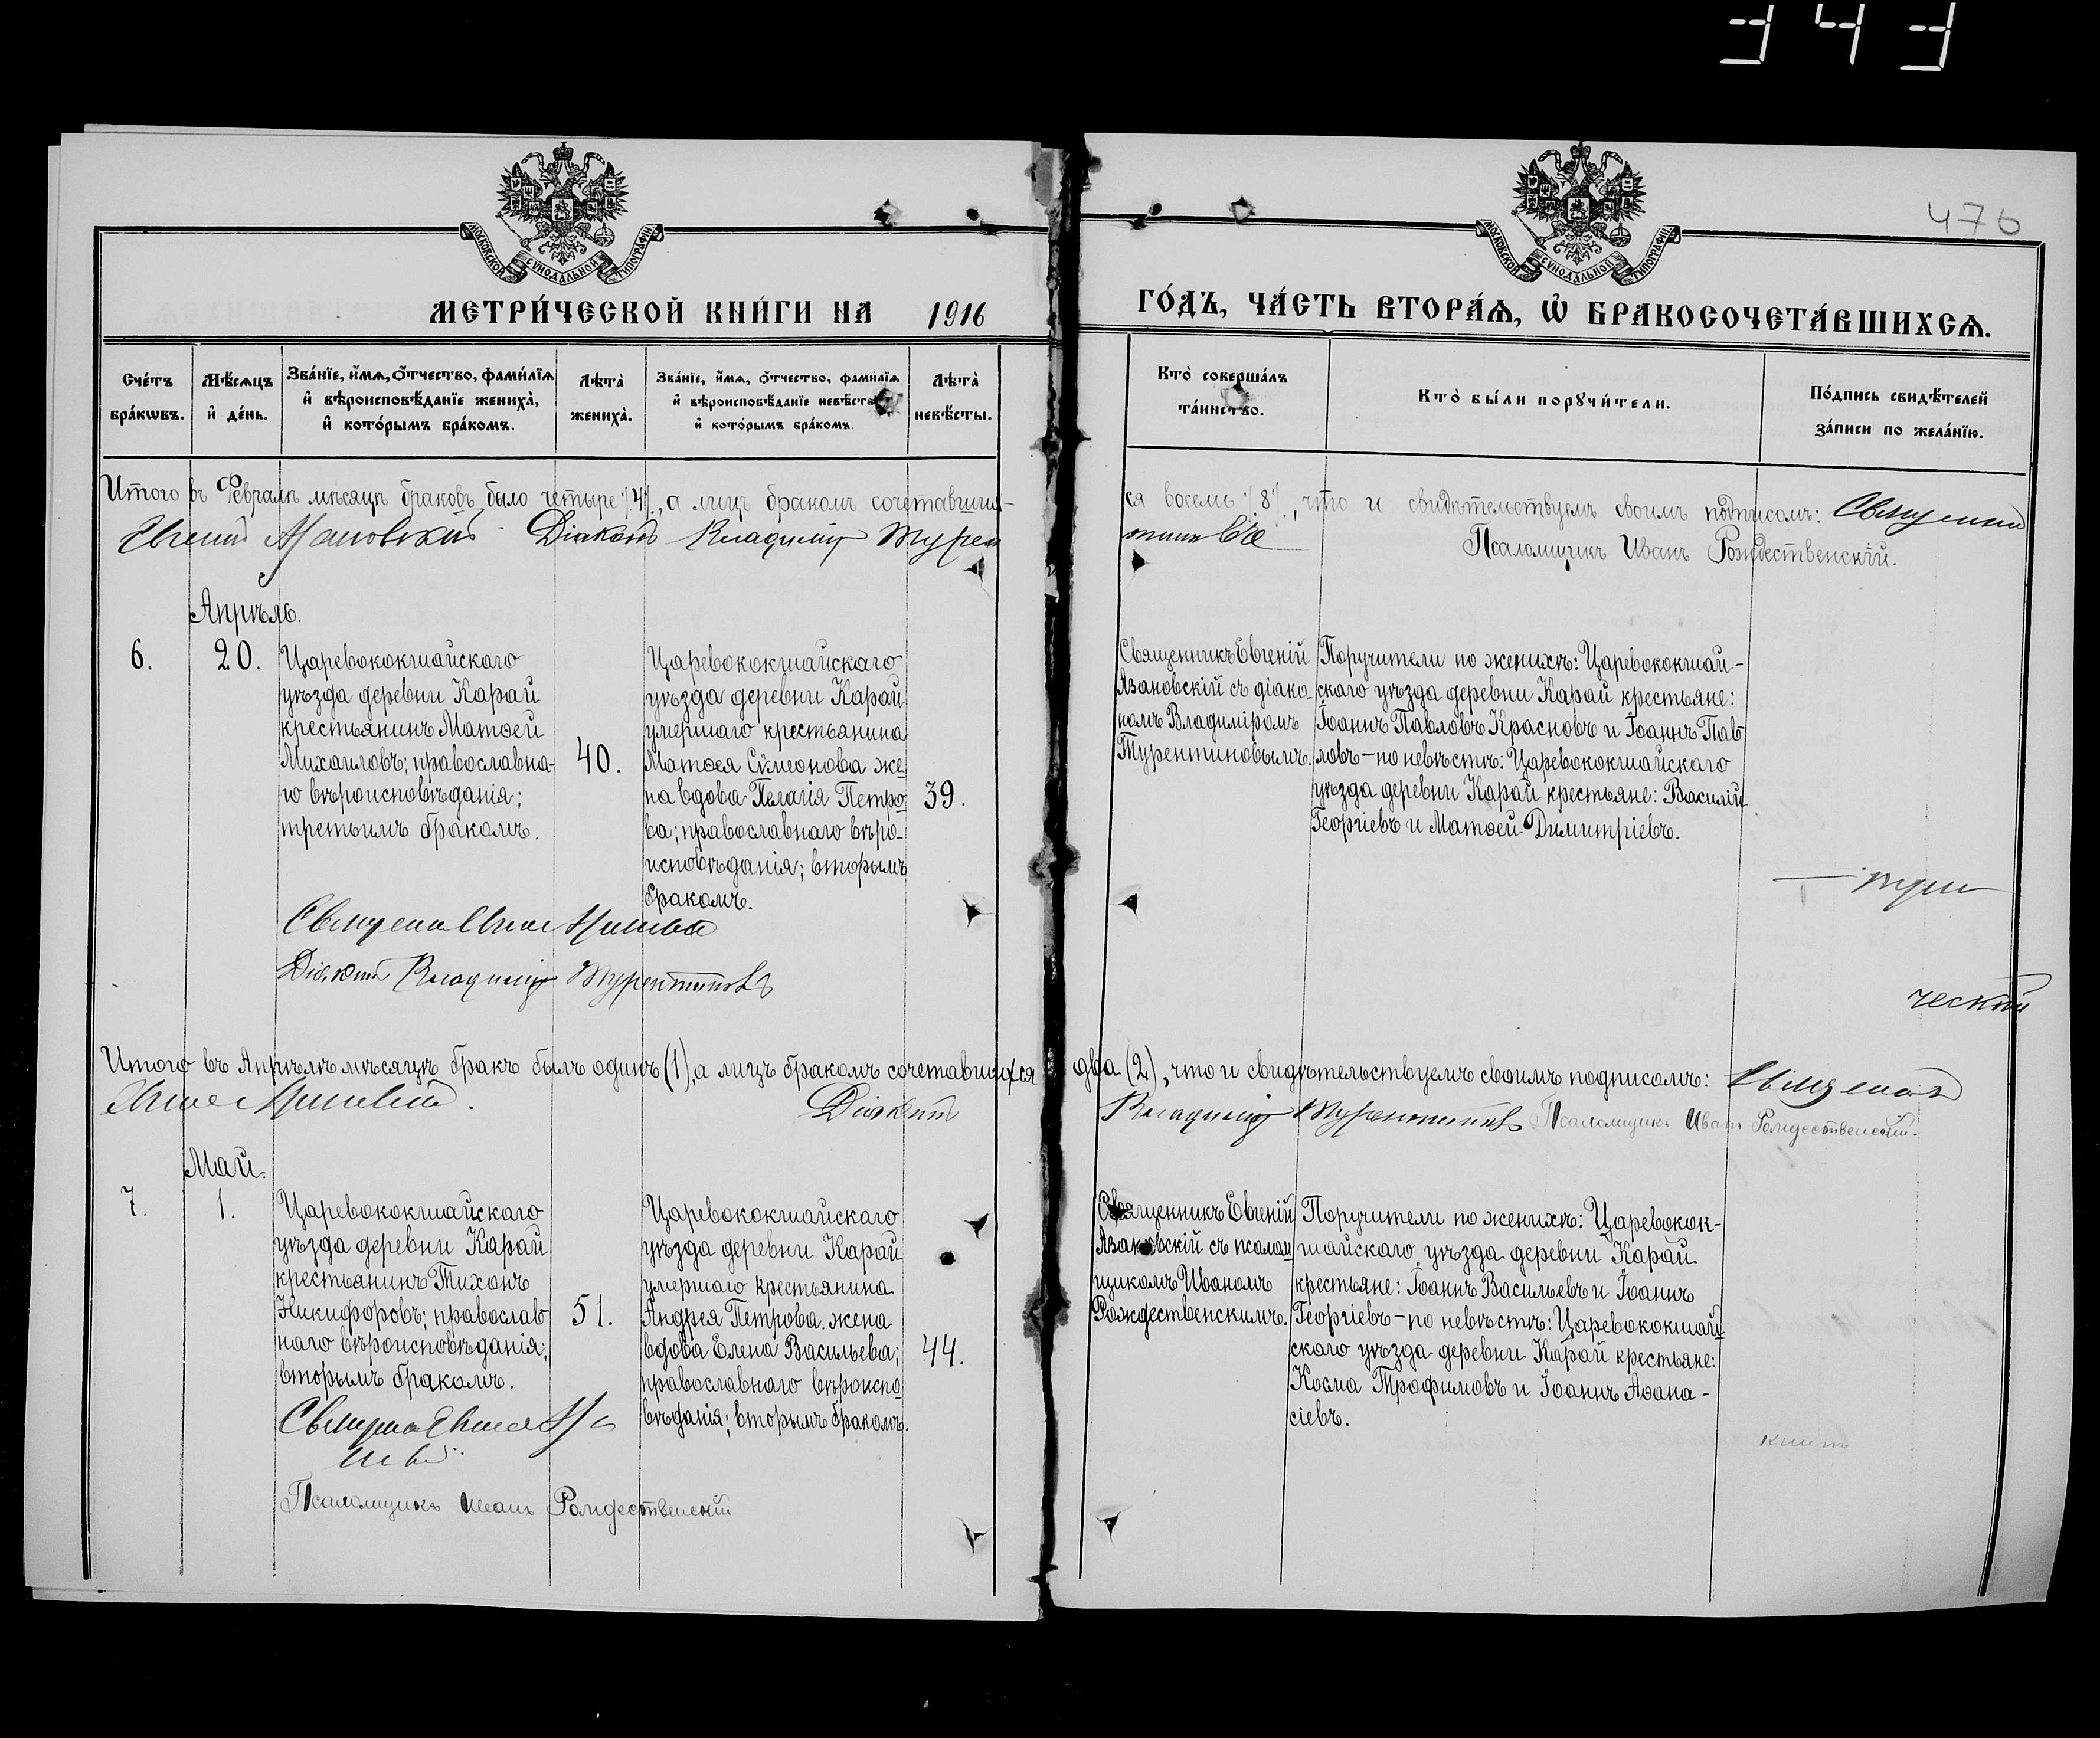 343
476
МОСКОВСКОЙ СѴНОДАЛЬНОЙ ТИПОГРАФІИ
МОСКОВСКОЙ СѴНОДАЛЬНОЙ ТИПОГРАФІИ
МЕТРИ́ЧЕСКОЙ КНИ́ГИ НА 1916
ГО́ДЪ, ЧА́СТЬ ВТОРА́Ѧ, Ѽ БРАКОСОЧЕТА́ВШИХСѦ.
Сче́тъ
бра́кѡвъ.
Мѣ́сѧцъ
и҆ де́нь.
Зва́нїе, и҆́мѧ, ѻ҆́тчество, фами́лїѧ
и҆ вѣроисповѣ́данїе жениха̀,
и҆ кото́рымъ бра́комъ.
Лѣта̀
жениха̀.
Зва́нїе, и҆́мѧ, ѻ҆́тчество, фами́лїѧ
и҆ вѣроисповѣ́данїе невѣ́сты
и҆ кото́рымъ бра́комъ.
Лѣта̀
невѣ́сты.
Кто̀ соверша́лъ
та́инство.
Кто̀ бы́ли порꙋчи́тели.
По́дпись свидѣ́телей
за́писи по жела́нїю.
Итого въ Февралѣ мѣсяцѣ браковъ было четыре /4/, а лицъ бракомъ сочетавших-
ся восемь /8/, что и свидѣтельствуемъ своимъ подписомъ: Священникъ
Евгеній Азановскій Діаконъ Владиміръ Турен
тиновъ
Псаломщикъ Иванъ Рождественскій.
Апрѣль.
6.
20.
Царевококшайскаго
уѣзда деревни Карай
крестьянинъ Матѳей
Михаиловъ; православна-
го вѣроисповѣданія;
третьимъ бракомъ.
40.
Царевококшайскаго
уѣзда деревни Карай
умершаго крестьянина
Матѳея Сѷмеонова же-
на вдова Пелагія Петро-
ва; православнаго вѣро-
исповѣданія; вторымъ
бракомъ.
39.
Священникъ Евгеній
Азановскій съ діако-
номъ Владиміромъ
Турентиновымъ.
Поручители по женихѣ: Царевококшай-
скаго уѣзда деревни Карай крестьяне:
Іоаннъ Павловъ Красновъ и Іоаннъ Пав-
ловъ — по невѣстѣ: Царевококшайскаго
уѣзда деревни Карай крестьяне: Василій
Георгіевъ и Матѳей Димитріевъ.
Діаконъ Владиміръ Турентиновъ
ческій
Итого въ Апрѣлѣ мѣсяцѣ бракъ былъ одинъ (1), а лицъ бракомъ сочетавшихся два (2), что и свидѣтельствуемъ своимъ подписомъ: Священникъ
Діаконъ Владиміръ Турентиновъ Псаломщикъ Иванъ Рождественскій.
Май.
7.
1.
Царевококшайскаго
уѣзда деревни Карай
крестьянинъ Тихонъ
Никифоровъ; православ
наго вѣроисповѣданія;
вторымъ бракомъ.
51.
Царевококшайскаго
уѣзда деревни Карай
умершаго крестьянина
Андрея Петрова жена
вдова Елена Васильева;
православнаго вѣроиспо-
вѣданія; вторымъ бракомъ.
44.
Священникъ Евгеній
Азановскій съ псалом
щикомъ Иваномъ
Рождественскимъ.
Поручители по женихѣ: Царевокок-
шайскаго уѣзда деревни Карай
крестьяне: Іоаннъ Васильевъ и Іоаннъ
Георгіевъ — по невѣстѣ: Царевококшай-
скаго уѣзда деревни Карай крестьяне:
Косма Трофимовъ и Іоаннъ Аѳана-
сіевъ.
Псаломщикъ Иванъ Рождественскій